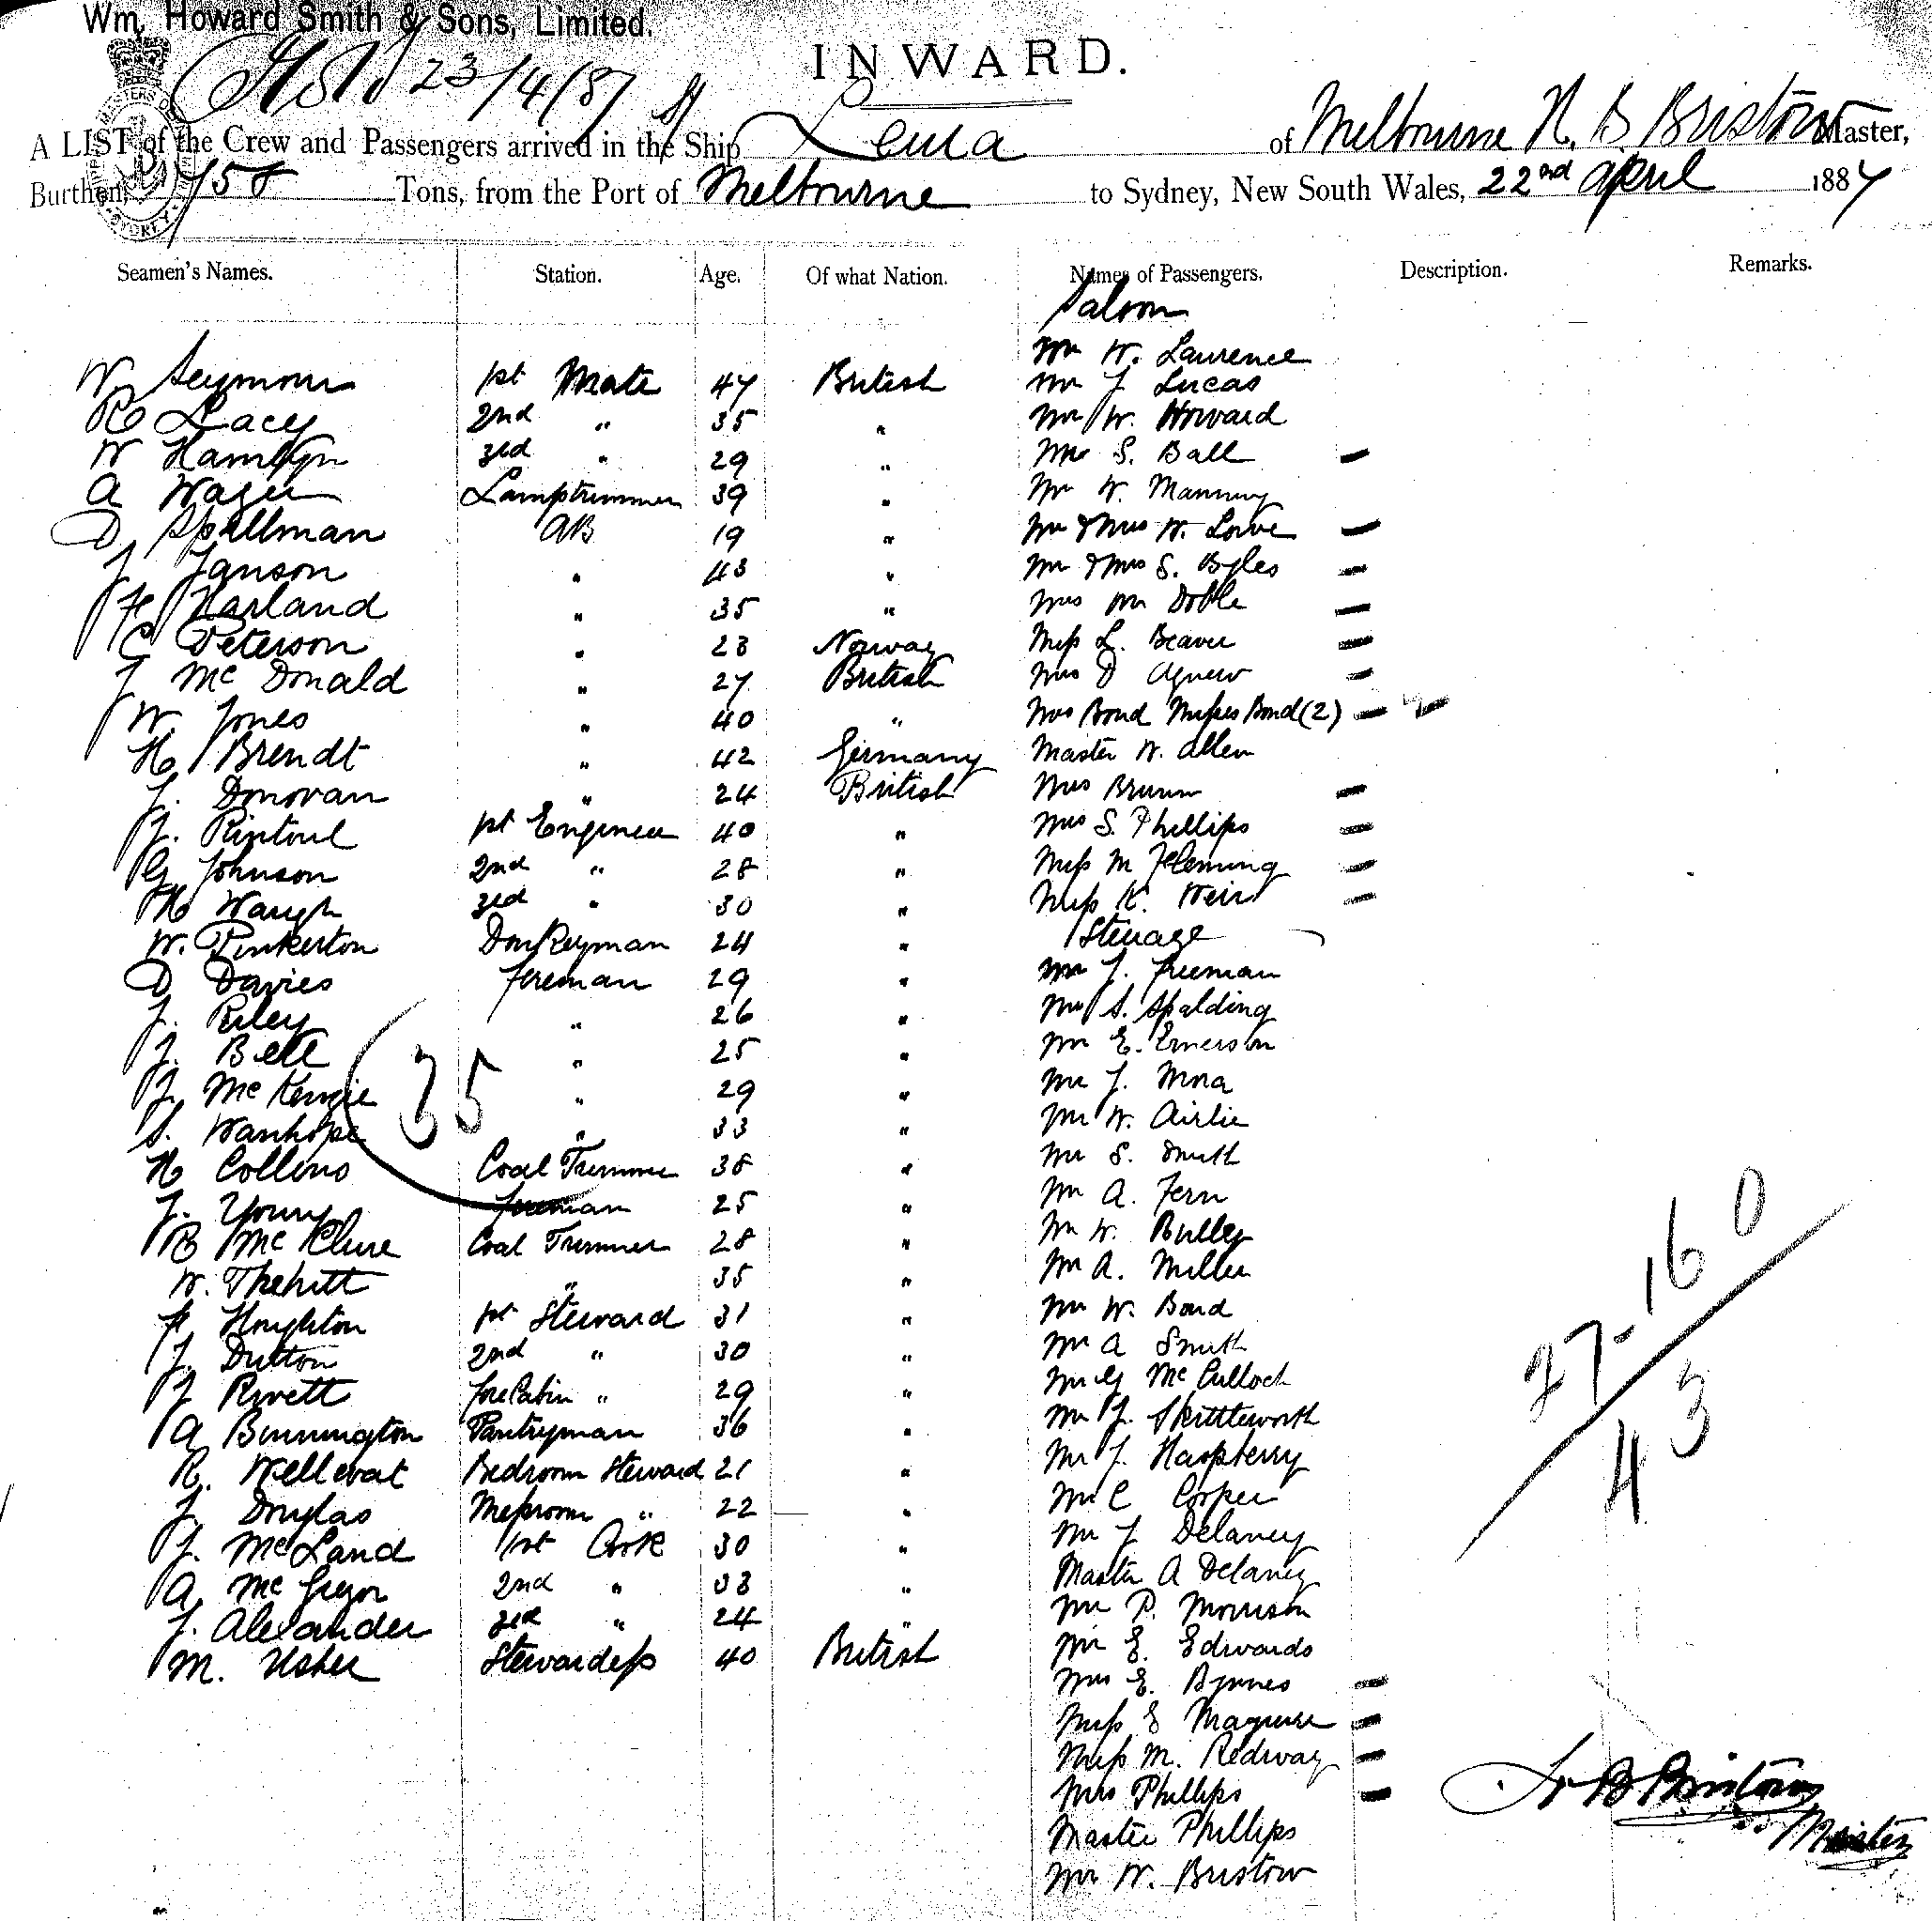 Wm. Howard Smith & Sons, Limited.
INWARD.
23/4/87
A LIST of the Crew and Passengers arrived in the Ship of Melbourne H. B. Bristow Master,
Burthen, Tons, from the Port of Melbourne to Sydney, New South Wales, 22nd April 1887
Seamen's Names. Station. Age. Of what Nation. Names of Passengers. Description. Remarks.
Saloon
Mr W. Laurence
W Seymour 1st Mate 47 British Mr J Lucas
R Lacey 2nd " 35 " Mr W. Howard
W Hamlyn 3rd " 29 " S. Ball
A Wager Lamptrimmer 39 " Mr W. Manning
D Spellman AB 19 " Mr & Mrs W. Lowe
J Janson " 43 " Mr & Mrs S. Byles
Harland " 35 " Mrs Wm Doble
C Peterson " 23 Norway Miss L. Beaver
J McDonald " 27 British Mrs D Agnew
W. Jones " 40 " Mrs Bond Misses Bond (2)
H Brendt " 42 Germany Master W. Allen
J. Donovan " 24 British Mrs
J. Rintoul 1st Engineer 40 " Mrs S. Phillips
G Johnson 2nd " 28 " Miss M Fleming
H Waugh 3rd " 30 " Miss K. Weir
W. Pinkerton Donkeyman 24 " Steerage
D Davies Fireman 29 " Mr J. Freeman
J. Riley " 26 " S. Spalding
J. Bell " 25 " Mr E. Emerson
J. McKenzie " 29 " Mr J. Mora
S. Wanhope " 33 " Mr W. Airlie
35
H Collins Coal Trimmer 38 " Mr S. Smith
J. Young Fireman 25 " Mr A. Fern
R McClure Coal Trimmer 28 " Mr W. Bulley
W. " 35 " Mr A. Miller
Houghton 1st Steward 31 " Mr W. Bond
J. Dutton 2nd " 30 " Mr A Smith
J Rivett Fore Cabin " 29 " Mr G McCulloch
A Bennington Pantryman 36 " Mr J. Skittleworth
R. Bedroom Steward 21 " Mr J. Raspberry
J. Douglas Messroom " 22 " Mr C Cooper
J. McLand 1st Cook 30 " Mr J Delaney
A. McGregor 2nd " 33 " Master A Delaney
J. Alexander 3rd " 24 " Mr P. Morrison
M. Usher Stewardess 40 British Mr E. Edwards
Mrs E. Byrnes
Miss E Maguire
Miss M. Redway
Mrs Phillips
Master Phillips
Mr W. Bristow
27-16 0
43
H B Bristow
Master